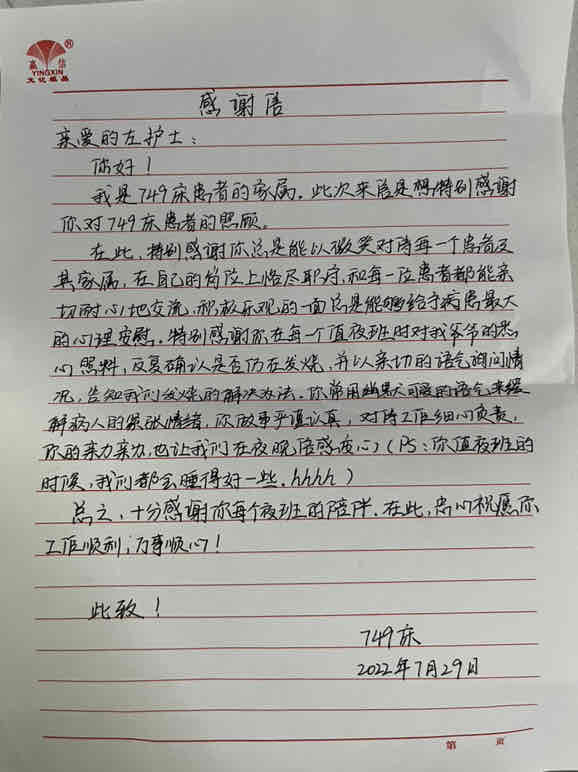 赢信
YINGXIN
文化纸品
感谢信
亲爱的左护士：
你好！
我是749床患者的家属。此次来信是想特别感谢
你对749床患者的照顾。
在此，特别感谢你总是能以微笑对待每一个患者及
其家属，在自己的岗位上恪尽职守，和每一位患者都能亲
切耐心地交流，积极乐观的一面总是能够给予病患最大
的心理安慰。特别感谢你在每一个值夜班时对我爷爷的悉
心照料，反复确认是否仍在发烧，并以亲切的语气询问情
况，告知我们发烧的解决办法。你常用幽默可爱的语气来缓
解病人的紧张情绪，你做事严谨认真，对待工作细心负责，
你的亲力亲为，也让我们在夜晚倍感安心）（PS：你值夜班的
时候，我们都会睡得好一些。hhhh）
总之，十分感谢你每个夜班的陪伴。在此，忠心祝愿你
工作顺利，万事顺心！
此致！
749床
2022年7月29日
第 页